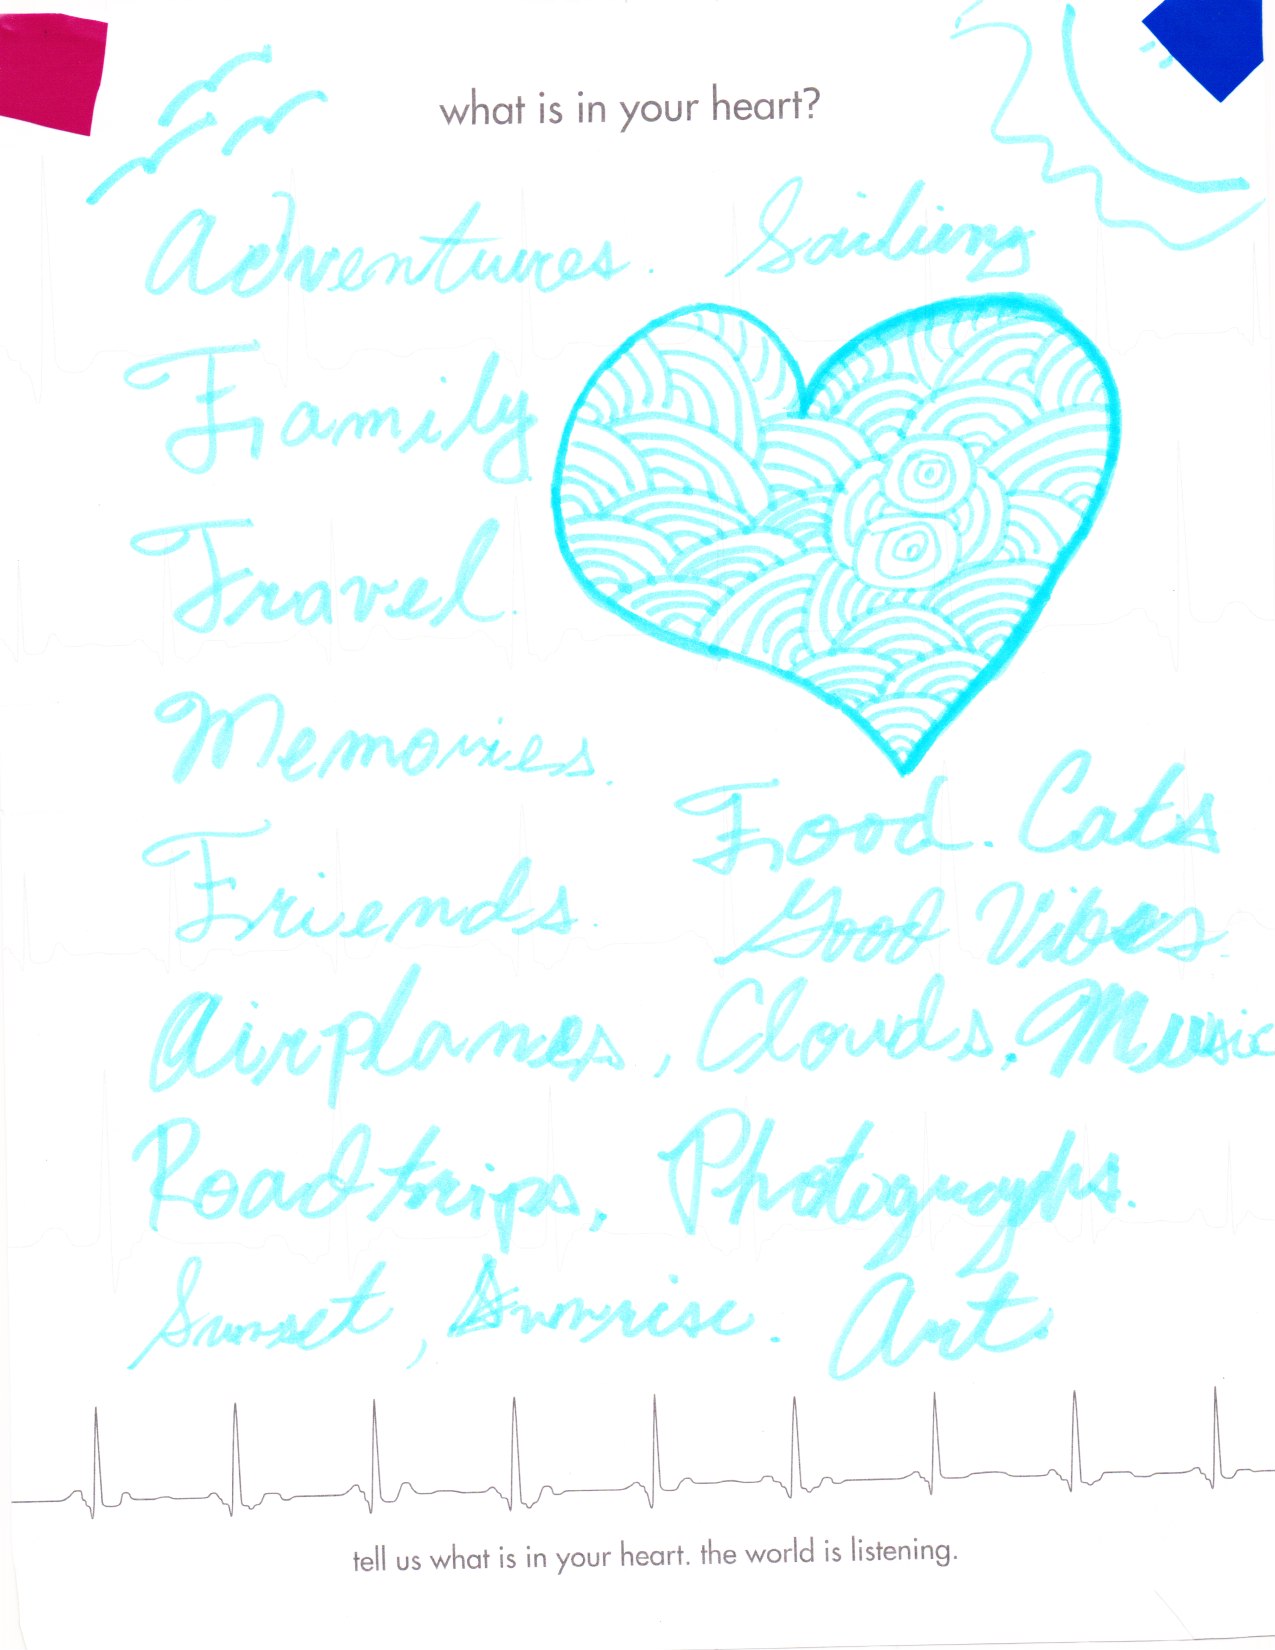 what is in your heart?
Adventures. Sailing
Family
Travel.
Memories.
Food. Cats
Friends.
Good Vibes.
Airplanes, Clouds. Music
Roadtrips, Photographs.
Sunset, Sunrise. Art.
tell us what is in your heart. the world is listening.